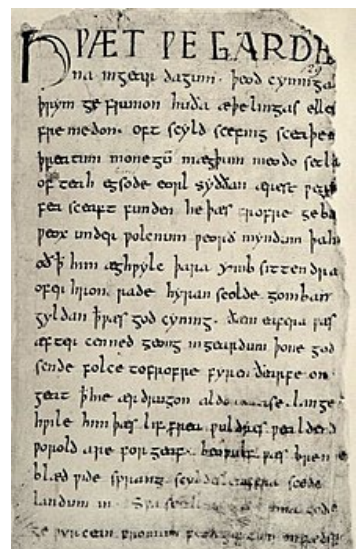 HǷÆT ǷE GARDE
129
na ingear dagum. þeod cyninga
þrym ge frunon huða æþelingas elle
fremedon. oft scyld scefing sceaþe
þreatum monegū mægþum meodo setla
of teah egsode eorl syððan ærest ƿear
fea sceaft funden he þæs frofre geba
ƿeox under ƿolcnum ƿeorð myndum þah
oð ꝥ him æghƿylc þara ymb sittendra
ofer hron rade hyran scolde gomban
gyldan ꝥ ƿæs god cyning. ðæm eafera ƿæs
æfter cenned geong ingeardum þone god
sende folce tofrofre fyren ðearfe on
geat ꝥ hie ær drugon aldor ase. lange
hƿile him þæs lif frea ƿuldres ƿealdend
ƿorold are for geaf. beoƿulf ƿæs breme
blæd ƿide sprang scyldes eafera scede
landum in. Sƿa sceal guma gode
ge ƿyrcean fromum